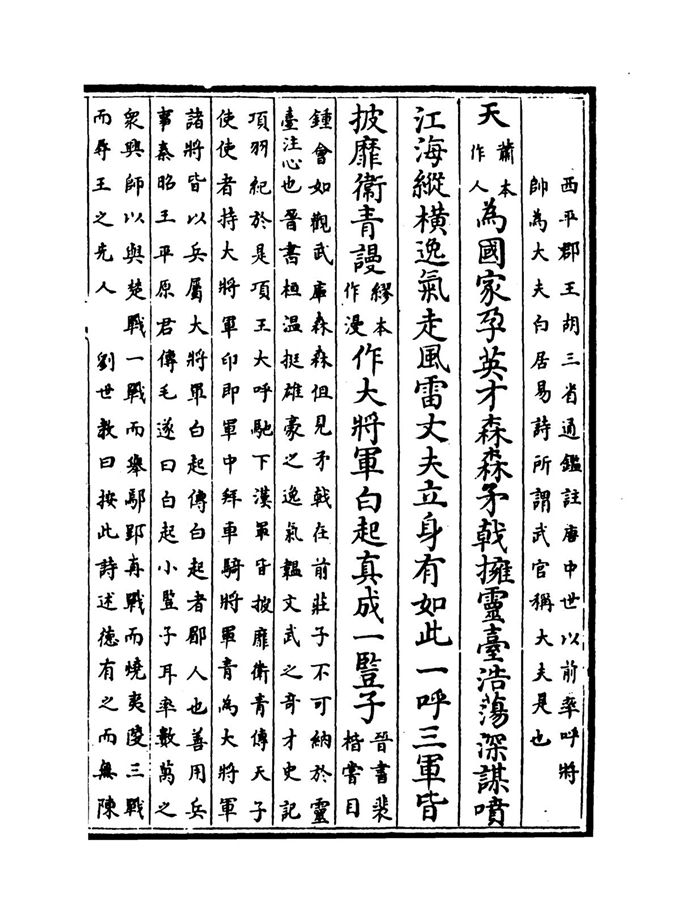 西平郡王胡三省通鑑註唐中世以前率呼將
帥為大夫白居易詩所謂武官稱大夫是也
天蕭本作人為國家孕英才森森矛戟擁靈臺浩蕩深謀噴
江海縱橫逸氣走風雷丈夫立身有如此一呼三軍皆
披靡衛青謾繆本作漫作大將軍白起真成一豎子晉書裴楷嘗目
鍾會如觀武庫森森但見矛戟在前莊子不可納於靈
臺注心也晉書桓溫挺雄豪之逸氣韞文武之奇才史記
項羽紀於是項王大呼馳下漢軍皆披靡衛青傳天子
使使者持大將軍印即軍中拜車騎將軍青為大將軍
諸將皆以兵屬大將軍白起傳白起者郿人也善用兵
事秦昭王平原君傳毛遂曰白起小豎子耳率數萬之
衆興師以與楚戰一戰而舉鄢郢再戰而燒夷陵三戰
而辱王之先人　劉世教曰按此詩述德有之而無陳